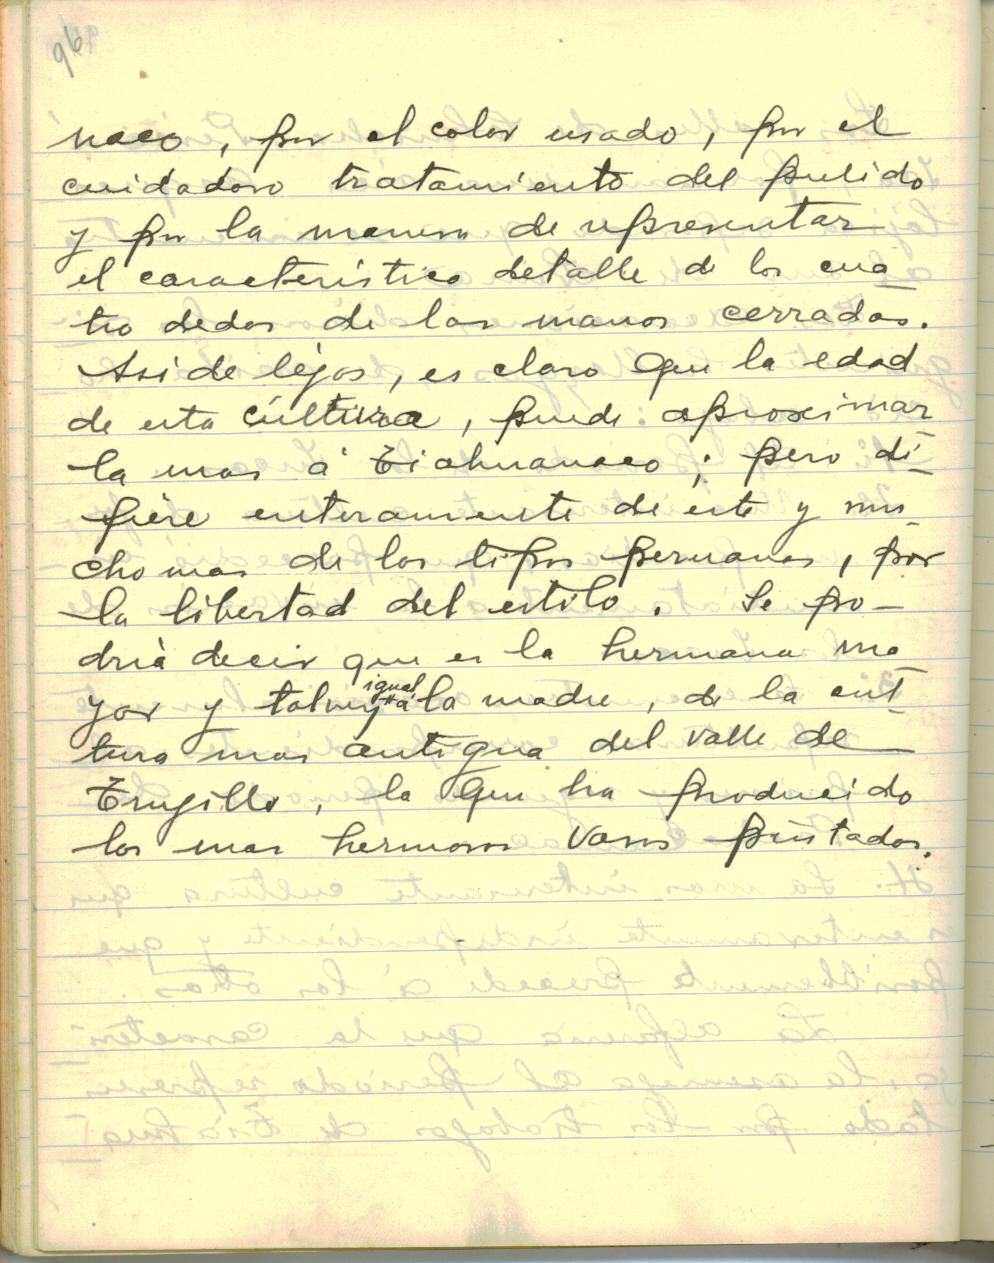 96
naco, por el color usado, por el
cuidadoso tratamiento del pulido
y por la manera de representar
el caracteristico detalle de los cua_
tro dedos de las manos cerradas.
Asi de léjos, es claro que la edad
de esta cultura, puede aproximar_
la mas á Tiahuanaco; pero di_
fiere enteramente de este y mu_
cho mas de los tipos peruanos, por
la libertad del estilo. Se po_
dria decir que es la hermana ma_
yor y talvez igual á la madre, de la cul_
tura mas antigua del valle de_
Trugillo, la que ha producido
los mas hermosos vasos pintados.